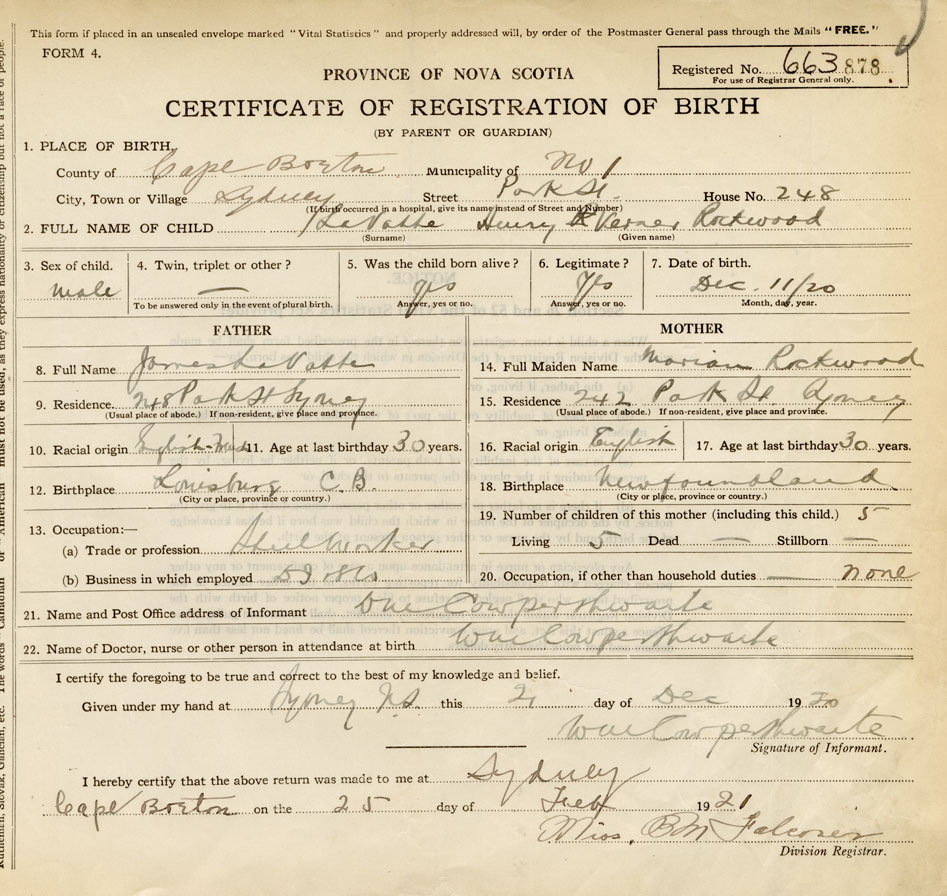 This form if placed in an unsealed envelope marked "Vital Statistics" and properly addressed will, by order of the Postmaster General pass through the Mails "FREE."
FORM 4.
Registered No. 663878.
For use of Registrar General only.
PROVINCE OF NOVA SCOTIA
CERTIFICATE OF REGISTRATION OF BIRTH
(BY PARENT OR GUARDIAN)
1. PLACE OF BIRTH,
County of Cape Breton Municipality of No 1
City, Town or Village Sydney Street Park St. House No. 248
(If birth occurred in a hospital, give its name instead of Street and Number)
2. FULL NAME OF CHILD LaVatte Henry Verner Rockwood
(Surname) (Given name)
3. Sex of child. 4. Twin, triplet or other? 5. Was the child born alive? 6. Legitimate? 7. Date of birth.
male — yes yes Dec. 11/20
To be answered only in the event of plural birth. Answer, yes or no. Answer, yes or no. Month, day, year.
FATHER
8. Full Name James LaVatte
9. Residence 248 Park St Sydney
(Usual place of abode.) If non-resident, give place and province.
10. Racial origin English 11. Age at last birthday 30 years.
12. Birthplace Louisburg C.B.
(City or place, province or country.)
13. Occupation:—
(a) Trade or profession Steel Worker
(b) Business in which employed
MOTHER
14. Full Maiden Name Marian Rockwood
15. Residence 242 Park St. Sydney
(Usual place of abode.) If non-resident, give place and province.
16. Racial origin English 17. Age at last birthday 30 years.
18. Birthplace Newfoundland
(City or place, province or country.)
19. Number of children of this mother (including this child.) 5
Living 5 Dead — Stillborn —
20. Occupation, if other than household duties — none
21. Name and Post Office address of Informant Cowperthwaite
22. Name of Doctor, nurse or other person in attendance at birth Cowperthwaite
I certify the foregoing to be true and correct to the best of my knowledge and belief.
Given under my hand at Sydney N.S. this 21 day of Dec 1920
Cowperthwaite
Signature of Informant.
I hereby certify that the above return was made to me at Sydney
Cape Breton on the 25 day of Feb 1921
Miss. B M Falconer
Division Registrar.